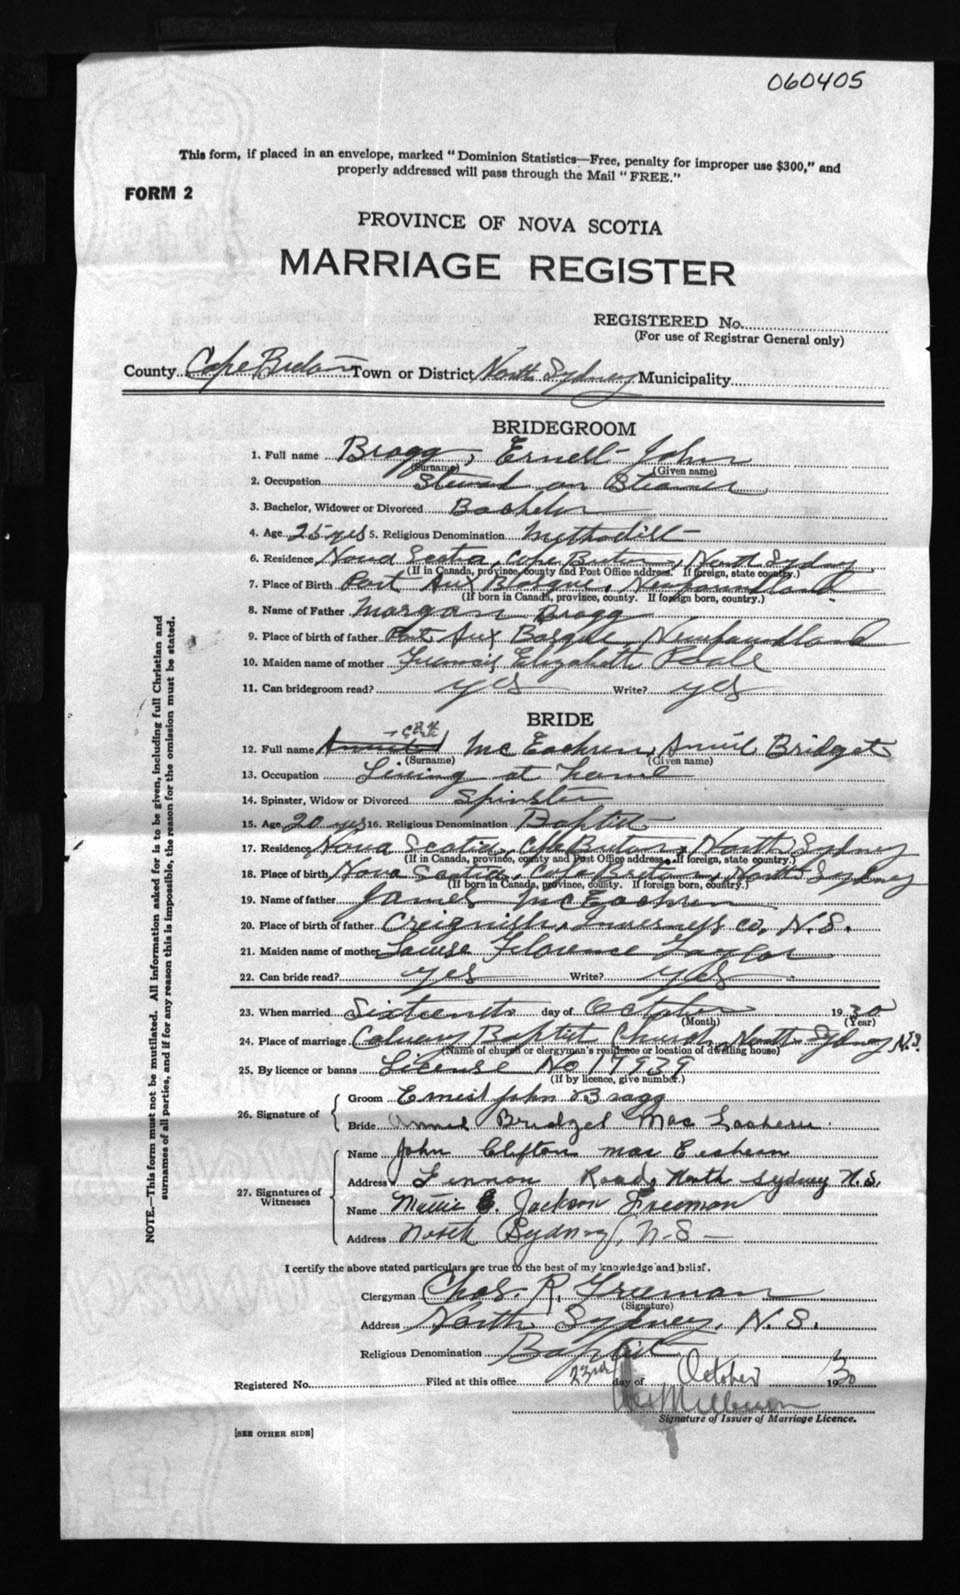 060405
This form, if placed in an envelope, marked "Dominion Statistics—Free, penalty for improper use $300," and
properly addressed will pass through the Mail "FREE."
FORM 2
PROVINCE OF NOVA SCOTIA
MARRIAGE REGISTER
REGISTERED No.
(For use of Registrar General only)
County Cape Breton Town or District North Sydney Municipality
BRIDEGROOM
1. Full name Bragg, Ernest John
(Surname) (Given name)
2. Occupation Steward on Steamer
3. Bachelor, Widower or Divorced Bachelor
4. Age 25 yrs 5. Religious Denomination Methodist
6. Residence Nova Scotia, Cape Breton, North Sydney
(If in Canada, province, county and Post Office address. If foreign, state country.)
7. Place of Birth Port Aux Basque, Newfoundland
(If born in Canada, province, county. If foreign born, country.)
8. Name of Father Morgan Bragg
9. Place of birth of father Port Aux Basque, Newfoundland
10. Maiden name of mother Francis Elizabeth
11. Can bridegroom read? yes Write? yes
BRIDE
12. Full name McEachren, Annie Bridget
(Surname) (Given name)
13. Occupation Living at home
14. Spinster, Widow or Divorced Spinster
15. Age 20 yrs 16. Religious Denomination Baptist
17. Residence Nova Scotia, Cape Breton, North Sydney
(If in Canada, province, county and Post Office address. If foreign, state country.)
18. Place of birth Nova Scotia, Cape Breton, North Sydney
(If born in Canada, province, county. If foreign born, country.)
19. Name of father James McEachren
20. Place of birth of father Creignish, Inverness co, N.S.
21. Maiden name of mother Louise Florence Taylor
22. Can bride read? yes Write? yes
23. When married Sixteenth day of October 1930
(Month) (Year)
24. Place of marriage Calvary Baptist Church, North Sydney N.S.
(Name of church or clergyman's residence or location of dwelling house)
25. By licence or banns License No 17939
(If by licence, give number.)
26. Signature of
Groom Ernest John Bragg
Bride Annie Bridget Mac Eachern
27. Signatures of Witnesses
Name John Clifton Mac Eachern
Address Lennon Road, North Sydney N.S.
Name Mattie E. Jackson Freeman
Address North Sydney, N-S-
I certify the above stated particulars are true to the best of my knowledge and belief.
Clergyman Chas. R. Freeman
(Signature)
Address North Sydney, N.S.
Religious Denomination Baptist
Registered No. Filed at this office 23rd day of October 1930
Signature of Issuer of Marriage Licence.
[SEE OTHER SIDE]
NOTE.—This form must not be mutilated. All information asked for is to be given, including full Christian and
surnames of all parties, and if for any reason this is impossible, the reason for the omission must be stated.